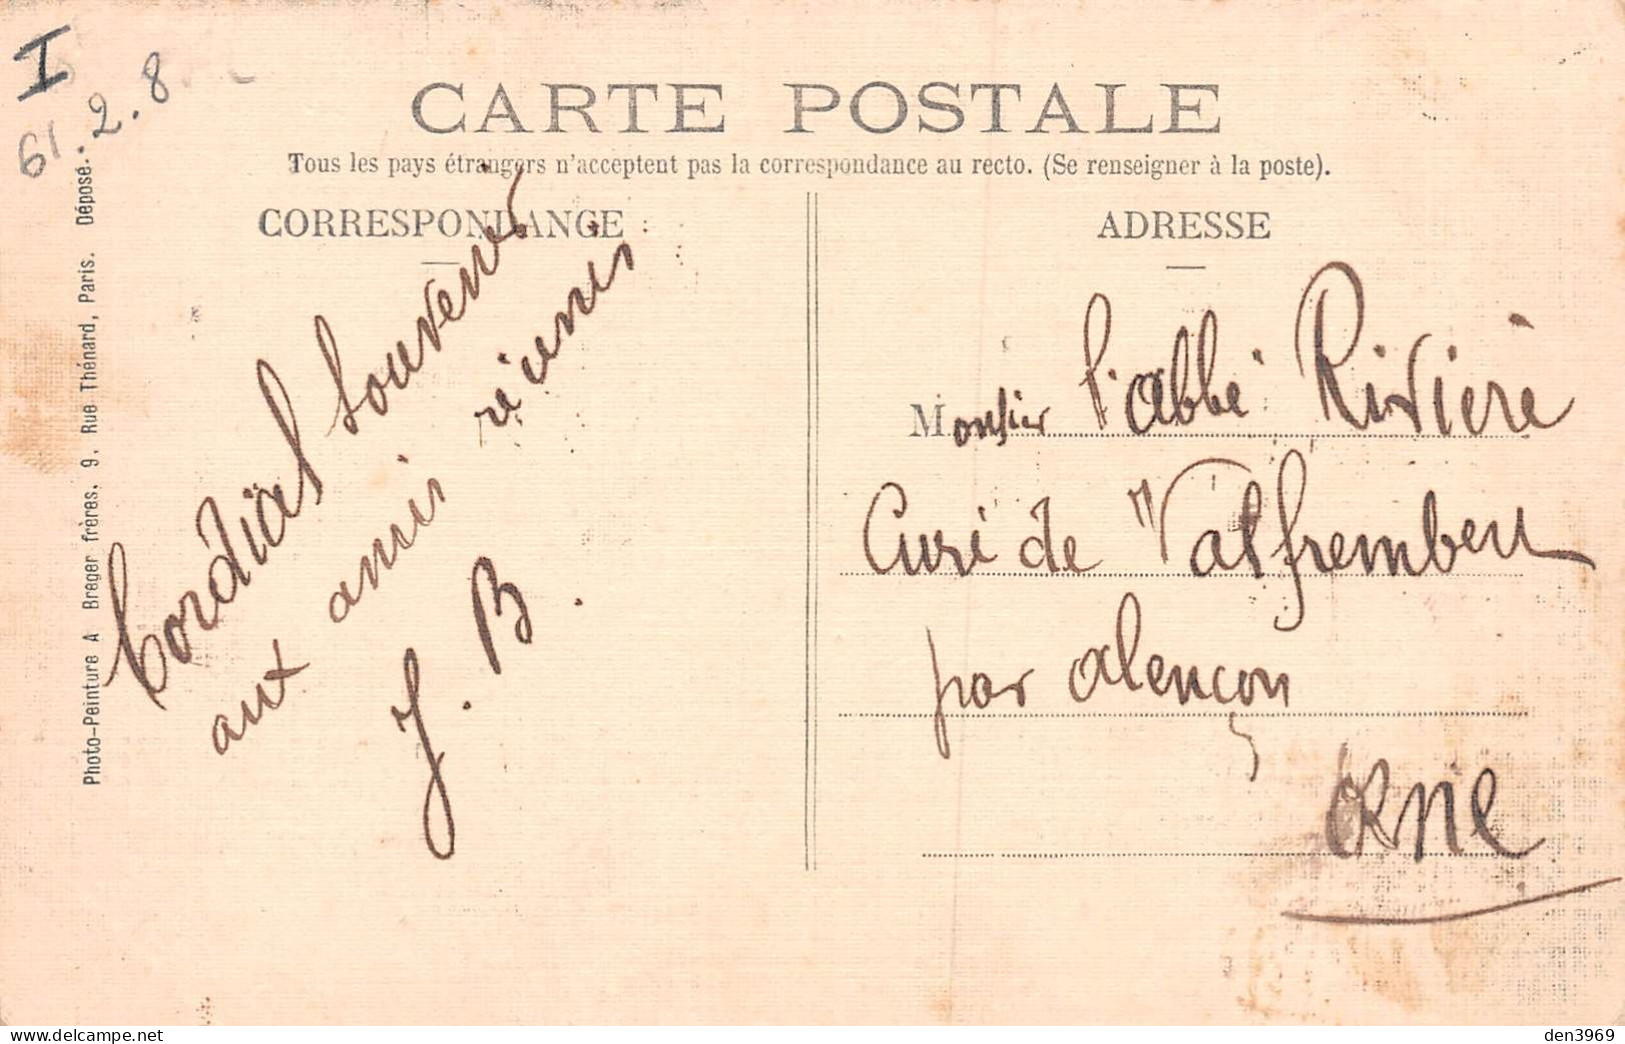 I
61.2.8
CARTE POSTALE
Tous les pays étrangers n'acceptent pas la correspondance au recto. (Se renseigner à la poste).
CORRESPONDANCE
Cordial souvenir
aux amis réunis
J. B.
Photo-Peinture A Breger frères, 9, Rue Thénard, Paris. Déposé.
ADRESSE
Monsieur l'abbé Rivière
Curé de Valframbert
par Alençon
Orne
https://www.delcampe.net
den3969